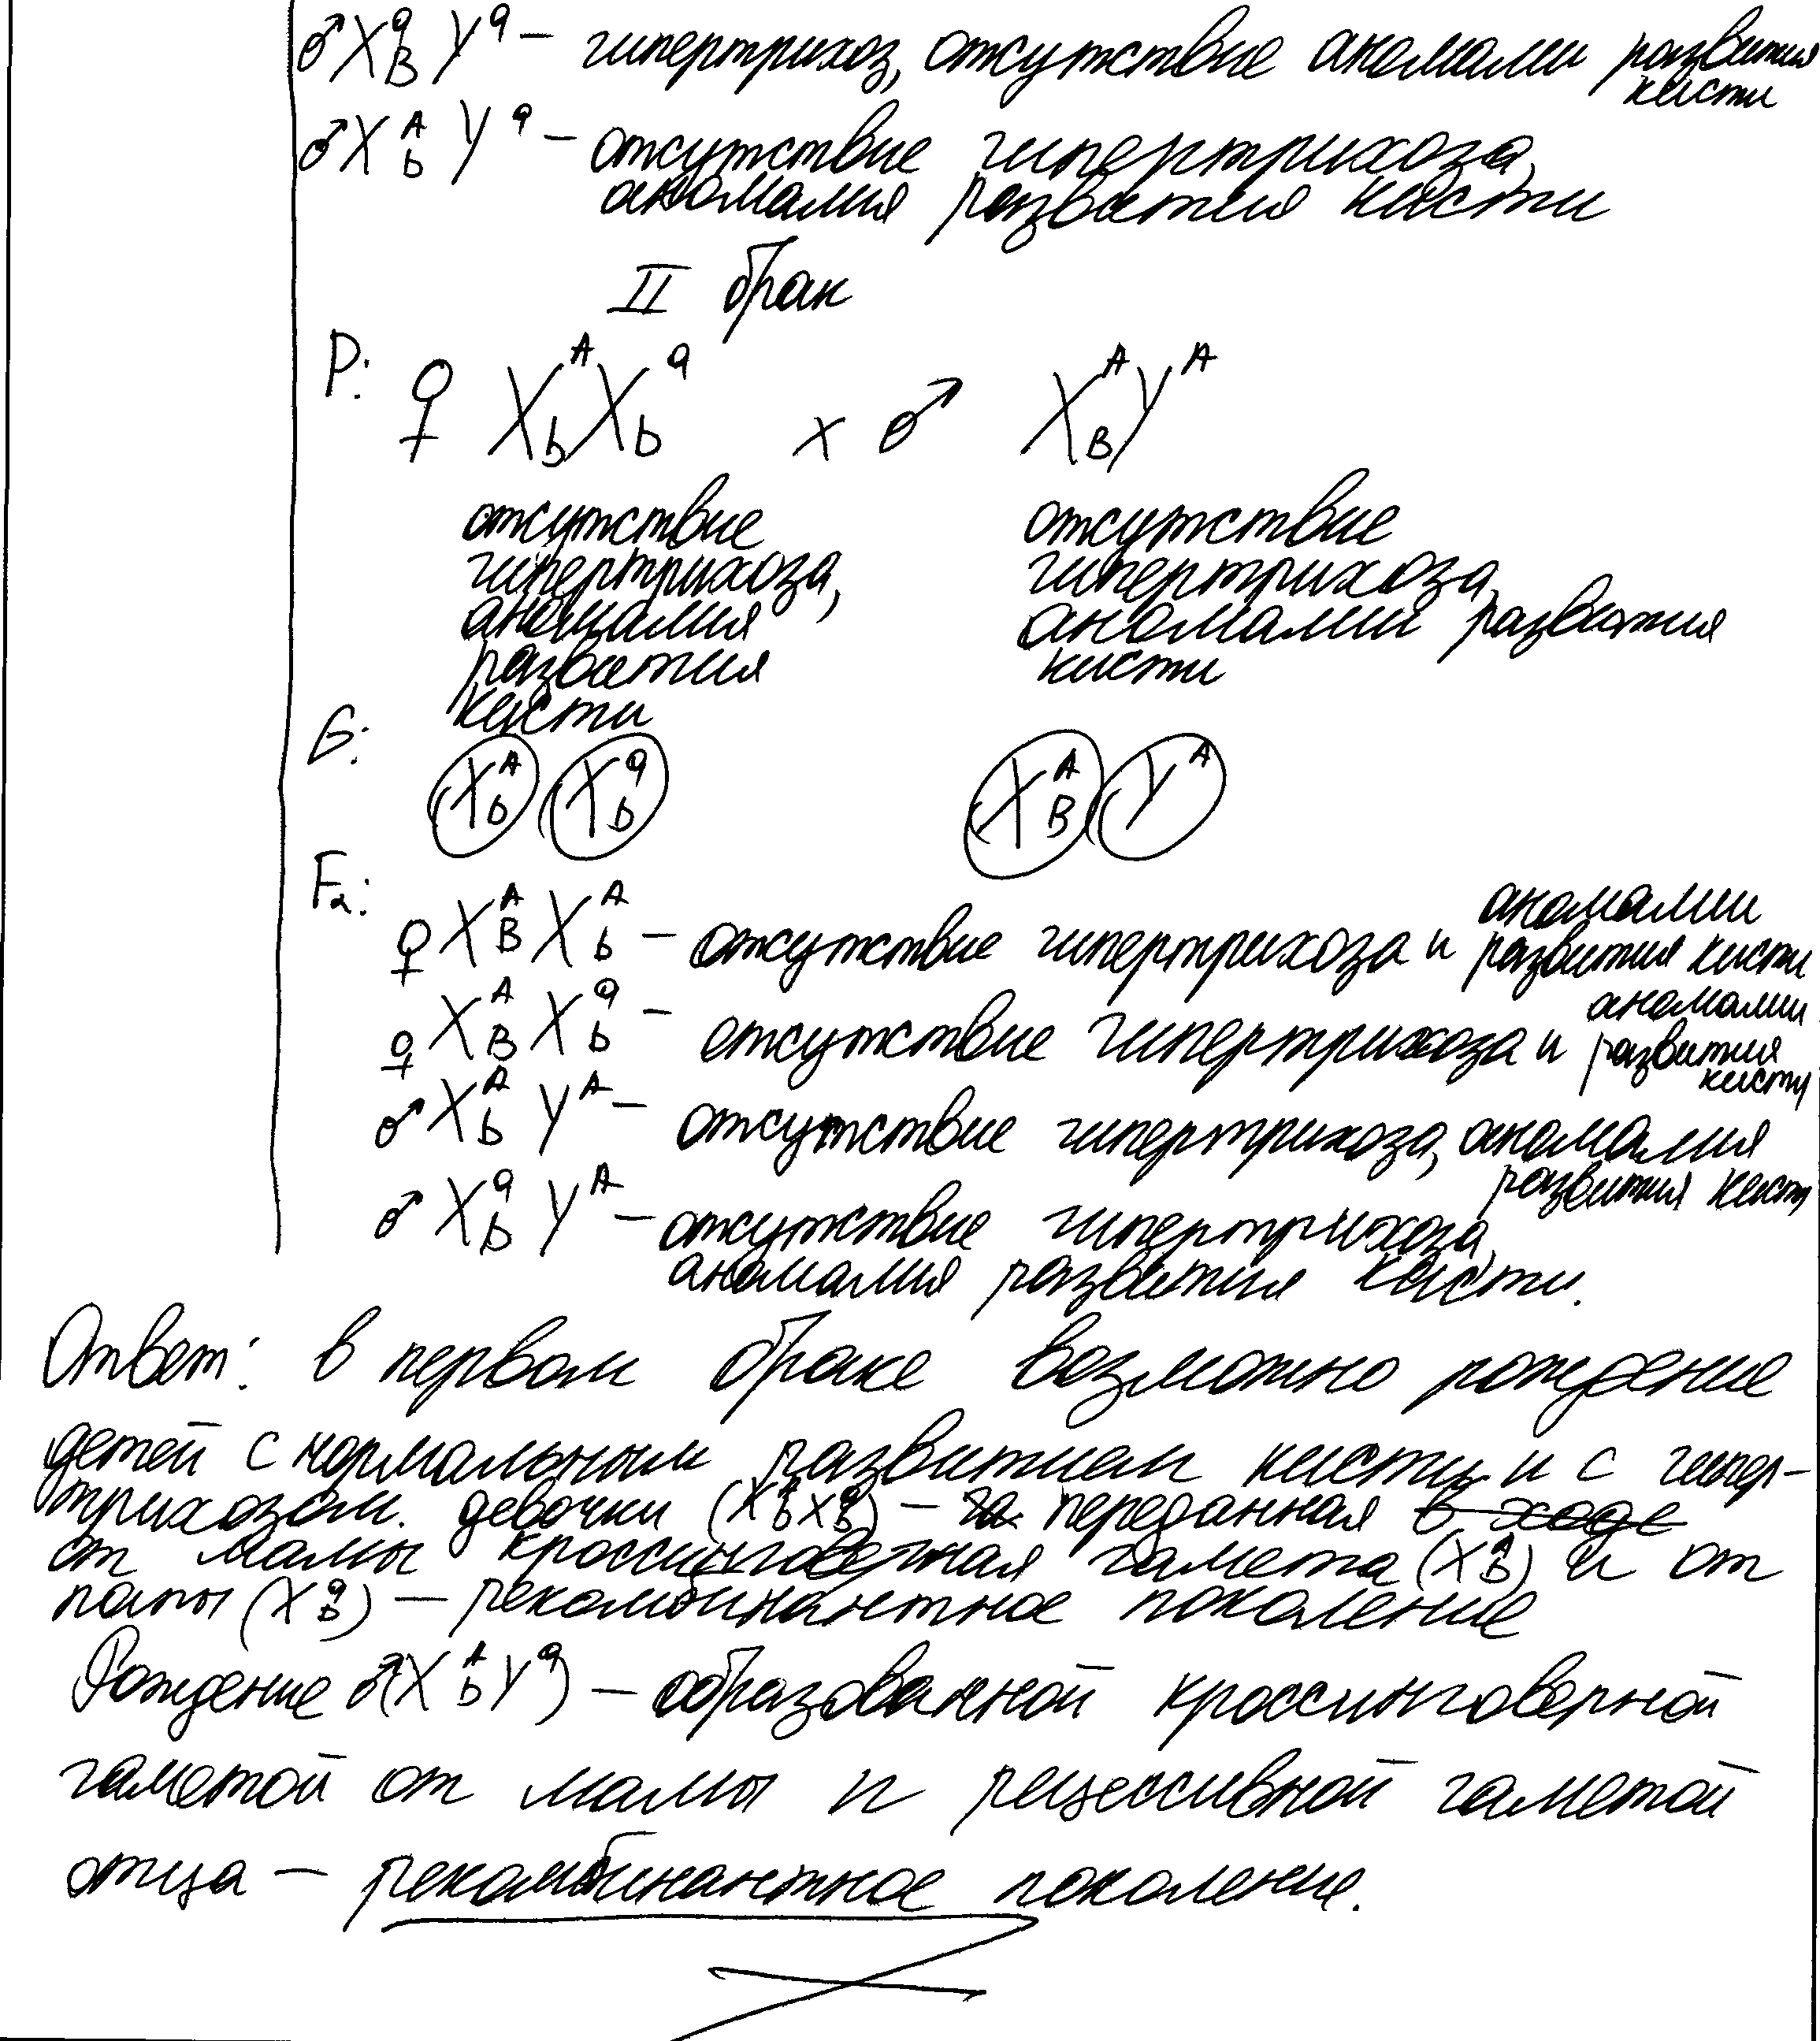 ♂XᵃB Yᵃ – гипертрихоз, отсутствие аномалии развития
кисти
♂Xᴬb Yᵃ – отсутствие гипертрихоза,
аномалия развития кисти
II брак
P: ♀ XᴬbXᵃb x ♂ XᴬBYᴬ
отсутствие гипертрихоза, аномалия развития кисти
отсутствие гипертрихоза, аномалии развития кисти
G: Xᴬb Xᵃb XᴬB Yᴬ
F₂:
♀ XᴬB Xᴬb – отсутствие гипертрихоза и аномалии развития кисти
♀ XᴬB Xᵃb – отсутствие гипертрихоза и аномалии развития кисти
♂ Xᴬb Yᴬ – отсутствие гипертрихоза, аномалия развития кисти
♂ Xᵃb Yᴬ – отсутствие гипертрихоза,
аномалия развития кисти.
Ответ: в первом браке возможно рождение
детей с нормальным развитием кисти и с гипер-
трихозом. девочки (XᴬbXᵃb) – переданная в ходе
от мамы кроссинговерная гамета (Xᴬb) и от
папы (Xᵃb) – рекомбинантное поколение
Рождение ♂(Xᴬb Yᵃ) – образованной кроссинговерной
гаметой от мамы и рецессивной гаметой
отца – рекомбинантное поколение.